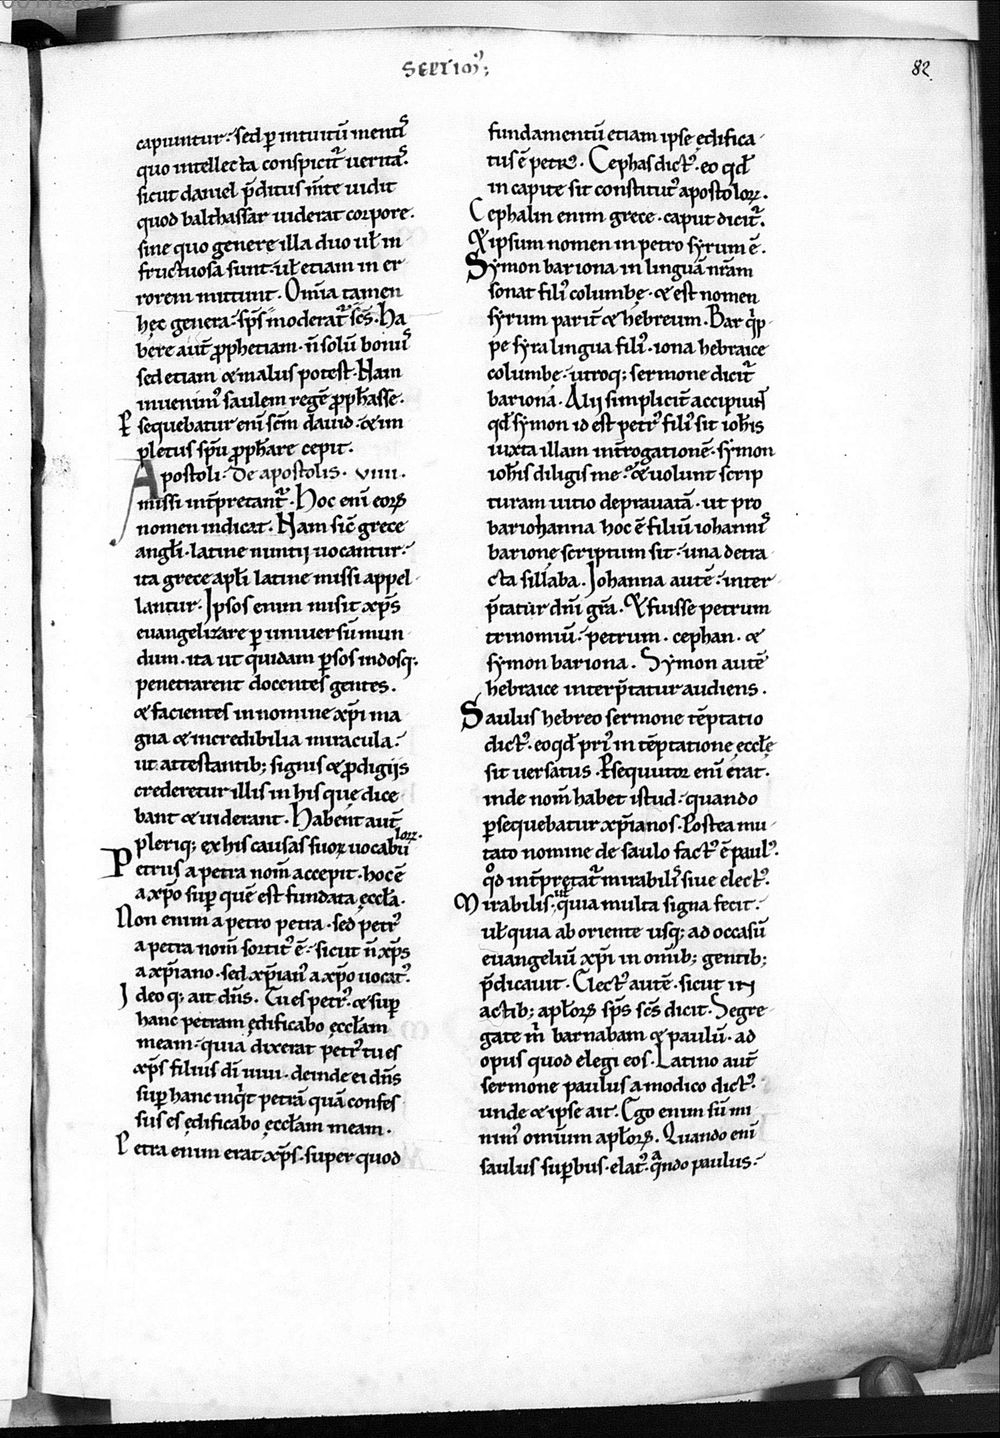 SEPTIM᷒;
82
capiuntur. sed ꝑ intuitū mentıſ
quo intellecta conspicit᷑ uerita.ſ
sicut daniel p̄ditus m̄te uidit
quod balthassar uiderat corpore.
sine quo genere illa duo ut̄ in
fructuosa sunt. ut̄ etiam in er
rorem mittunt. Om̄ia tamen
hęc genera. sp̄s moderat᷑ sc̄s. Ha
bere aut̄ ꝓphetiam. n̄ solū boni᷒
sed etiam & malus potest. Nam
inuenim᷒ saulem regē ꝓph̄asse.
Ꝑsequebatur eni scm̄ dauid. & im
pletus sp̄u ꝓph̄are cepit.
Apostoli. De apostolis. VIIII.
missi int̄pretant᷑. Hoc eni eoꝝ
nomen indicat. Nam sic̄ grece
angl̄i. latine nuntij uocantur.
ita grece apl̄i latine missi appel
lantur. Ipsos enim misit xp̄s
euangelizare ꝑ uniuersū mun
dum. ita ut quidam ꝑsos indosq;
penetrarent docentes gentes.
& facientes in nomine xp̄i ma
gna & incredibilia miracula.
ut attestantib; signis & ꝓdigijs
crederetur illis in his que dice
bant & uiderant. Habent aut̄
pleriq; ex his causas suoꝝ uocabu
loꝝ.
Petrus a petra nom̄ accepit. hoc ē
a xp̄o suꝑ quē est fundata eccl̄a.
Non enim a petro petra. sed petr᷒
a petra nom̄ sortit᷒ ē. sicut n̄ xp̄s
a xp̄iano. sed xp̄ian᷒ a xp̄o uocat᷑.
Ideoq; ait dn̄s. Tu es petr᷒. & suꝑ
hanc petram ędificabo ęccl̄am
meam. quia dixerat petr᷒ tu es
xp̄s filius dī uiui. deinde ei dn̄s
suꝑ hanc inqͥt petrā quā confes
sus es ędificabo ęccl̄am meam.
Petra enim erat xp̄s. super quod
fundamentū etiam ipse ędifica
tus ē petr᷒. Cephas dict᷒. eo qd̄
in capite sit constitut᷒ apostoloꝝ.
Cephalin enim grece. caput dicit᷑.
& ipsum nomen in petro syrum ē.
Symon bariona in linguā nr̄am
sonat fili᷒ columbę. & est nomen
syrum parit᷑ & hebreum. Bar qͥp
pe syra lingua fili᷒. iona hebraice
columbę. utroq; sermone dicit᷑
bariona. Alij simplicit᷑ accipiunt
qd̄ symon id est petr᷒ fili᷒ sit ioh̄is
iuxta illam int̄rogationē. symon
ioh̄is diligis me. & uolunt scrip
turam uitio deprauatā. ut pro
bariohanna hoc ē filiū iohannis
barione scriptum sit. una detra
cta sillaba. Johanna autē. inter
p̄tatur dn̄i gr̄a. & fuisse petrum
trinomiū. petrum. cephan. &
symon bariona. Symon autē
hebraice interp̄tatur audiens.
Saulus hebreo sermone tēptatio
dict᷒. eo qd̄ pri᷒ in tēptatione eccl̄ę
sit uersatus. Ꝑsequutor eni erat.
inde nom̄ habet istud. quando
ꝑsequebatur xp̄ianos. Postea mu
tato nomine de saulo fact᷒ ē paul᷒.
qd̄ int̄pręta᷑t mirabilis siue elect᷒.
Mirabilis. quia multa signa fecit.
ut̄ quia ab oriente usq; ad occasū
euangeliū xp̄i in om̄ib; gentib;
p̄dicauit. Elect᷒ autē. sicut in
actib; apl̄oꝝ sp̄s sc̄s dicit. Segre
gate m̄ barnabam & paulū. ad
opus quod elegi eos. Latino aut̄
sermone paulus a modico dict᷒.
unde & ipse ait. Ego enim sū mi
nim᷒ omium apl̄oꝝ. Quando eni
saulus suꝑbus. elat᷒. qͣndo paulus.